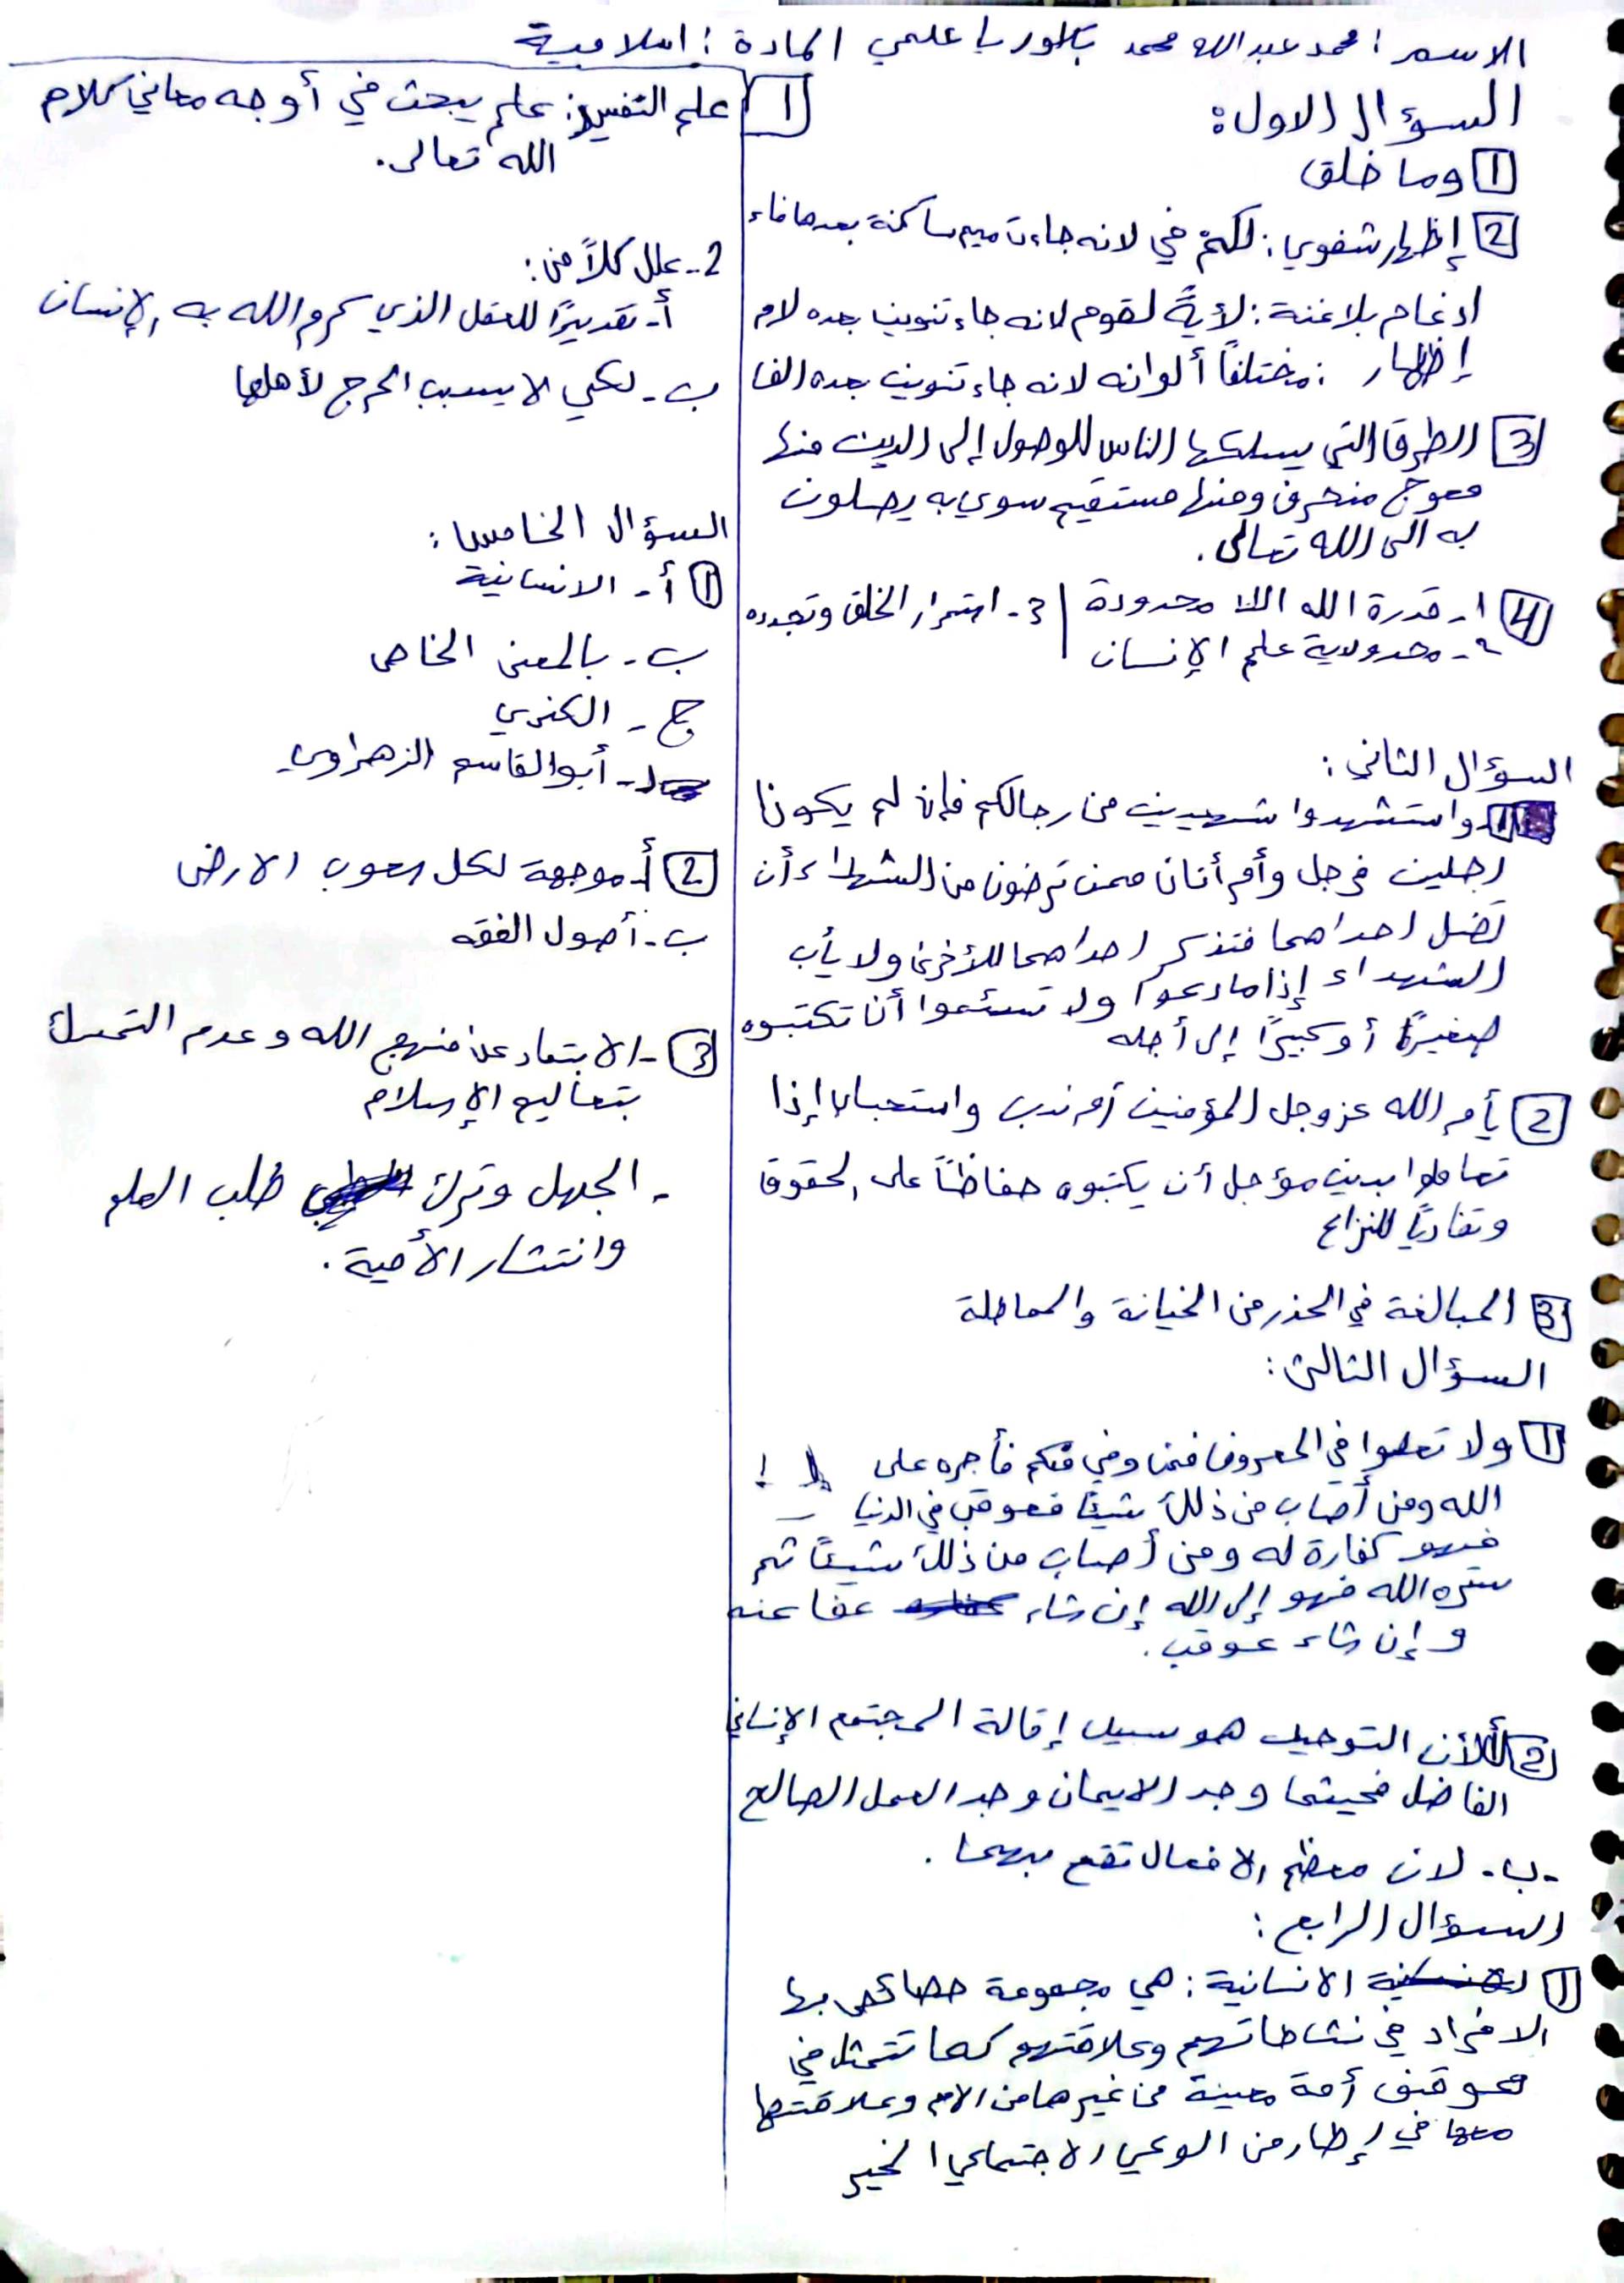 الاسم : محمد عبدالله محمد بكلوريا علمي المادة : اسلامية
السؤال الاول:
1 وما خلق
2 إظهار شفوي : لكم في لانه جاءت ميم ساكنة بعدها فاء
ادغام بلاغنة : لأيةً لقوم لانه جاء تنوين بعده لام
إظهار : مختلفاً ألوانه لانه جاء تنوين بعده الفا
3 الطرق التي يسلكها الناس للوصول إلى الدين منها
معوج منحرف ومنها مستقيم سوي به يصلون
به الى الله تعالى .
4 1- قدرة الله اللا محدودة | 3- استمرار الخلق وتجدده
2- محدودية علم الإنسان
السؤال الثاني :
1 واستشهدوا شهيدين من رجالكم فإن لم يكونا
رجلين فرجل وأمرأتان ممن ترضون من الشهداء أن
تضل احداهما فتذكر احداهما للأخرى ولا يأب
الشهداء إذا مادعوا ولا تسئموا أن تكتبوه
صغيرًا أو كبيرًا إلى أجله
2 يأمر الله عزوجل المؤمنين أمر ندب واستحباب إذا
تعاملوا بدين مؤجل أن يكتبوه حفاظاً على الحقوق
وتفاديًا للنزاع
3 المبالغة في الحذر من الخيانة والمماطلة
السؤال الثالث :
1 ولا تعصوا في المعروف فمن وفي منكم فأجره على
الله ومن أصاب من ذلك شيئًا فعوقب في الدنيا
فهو كفارة له ومن أصاب من ذلك شيئًا ثم
ستره الله فهو إلى الله إن شاء عفا عنه
و إن شاء عوقب .
2 أ لأن التوحيد هو سبيل إقالة المجتمع الإنساني
الفاضل فحيثما وجد الايمان وجد العمل الصالح
-ب- لان معظم الافعال تقع بهما .
السؤال الرابع :
1 الانسانية : هي مجموعة خصائص بها
الافراد في نشاطاتهم وعلاقتهم كما تتمثل في
موقف أمة معينة من غيرها من الامم وعلاقتها
معها في إطار من الوعي الاجتماعي الخير
1 علم التفسير : علم يبحث في أوجه معاني كلام
الله تعالى .
2- علل كلاً من :
أ- تقديرًا للعقل الذي كرم الله به الإنسان
ب- لكي لا يسبب الحرج لأهلها
السؤال الخامس :
1 أ- الانسانية
ب- بالمعنى الخاص
ج - الكندي
د- أبوالقاسم الزهراوي
2 أ- موجهة لكل شعوب الارض
ب- أصول الفقه
3 - الابتعاد عن منهج الله وعدم التمسك
بتعاليم الإسلام
- الجهل وترك طلب العلم
وانتشار الأمية .